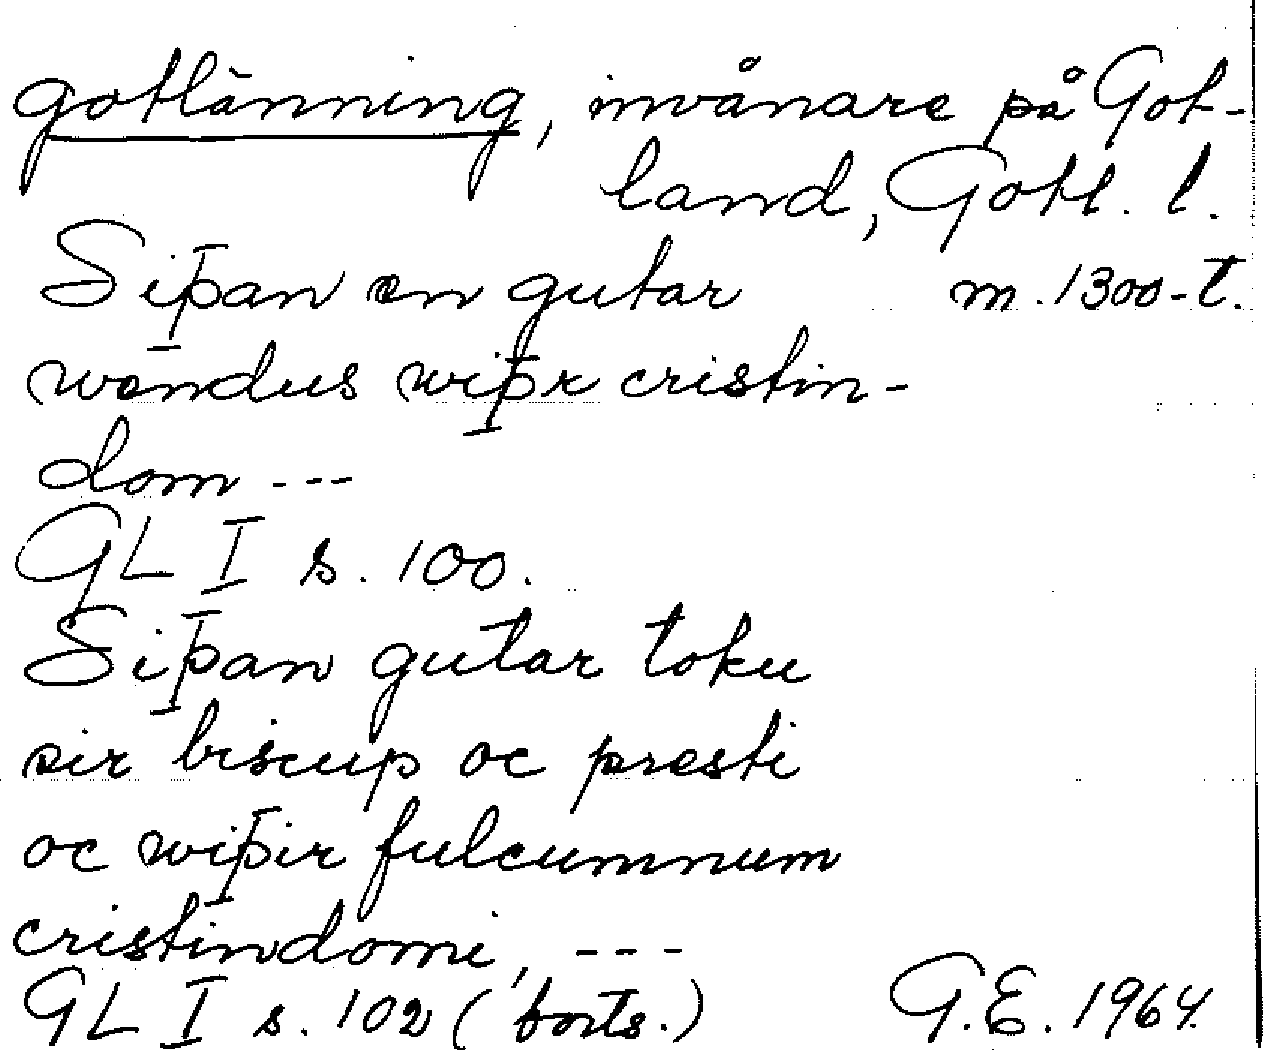 gotlänning, invånare på Got-
land, Gotl. l.
Siþan en gutar m. 1300-t.
wendus wiþr cristin-
dom ---
GL I s. 100.
Siþan gutar toku
sir biscup oc presti
oc wiþir fulcumnum
cristindomi, ---
GL I s. 102 (forts.) G.E. 1964.